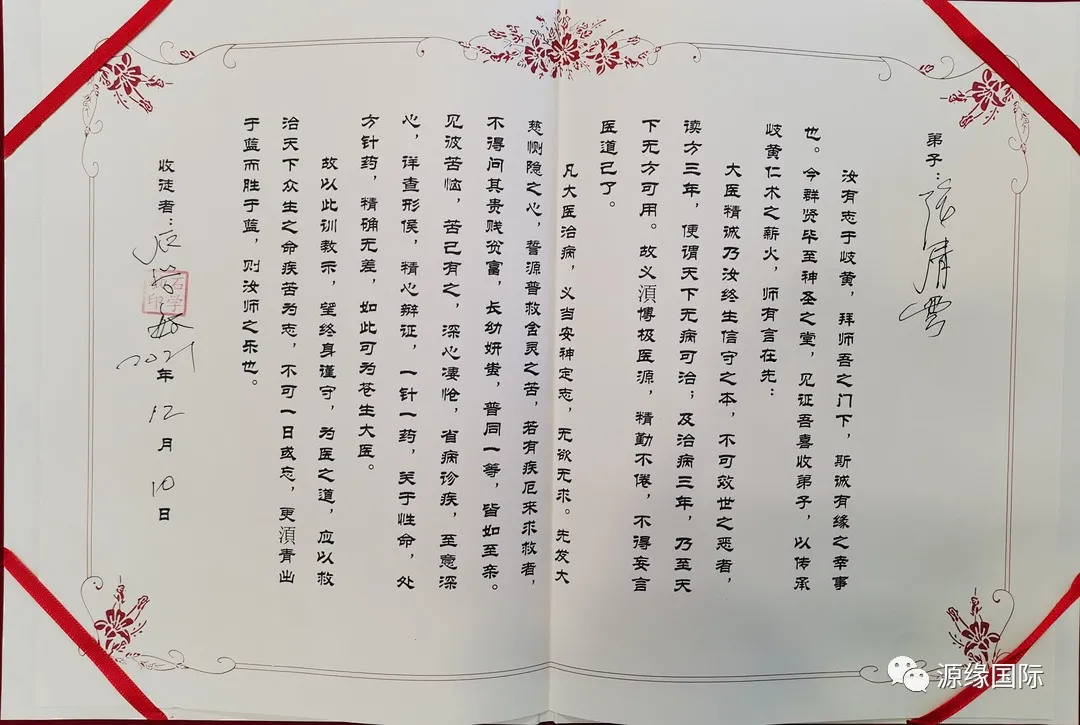 弟子：
汝有志于歧黄，拜师吾之门下，斯诚有缘之幸事
也。今群贤毕至神圣之堂，见证吾喜收弟子，以传承
歧黄仁术之薪火，师有言在先：
大医精诚乃汝终生信守之本，不可效世之恶者，
读方三年，便谓天下无病可治；及治病三年，乃至天
下无方可用。故义湏博极医源，精勤不倦，不得妄言
医道已了。
凡大医治病，义当安神定志，无欲无求。先发大
慈恻隐之心，誓源普救含灵之苦，若有疾厄来求救者，
不得问其贵贱贫富，长幼妍蚩，普同一等，皆如至亲。
见彼苦恼，苦己有之，深心凄怆，省病诊疾，至意深
心，详查形侯，精心辩证，一针一药，关于性命，处
方针药，精确无差，如此可为苍生大医。
故以此训教示，望终身谨守，为医之道，应以救
治天下众生之命疾苦为志，不可一日或忘，更湏青出
于蓝而胜于蓝，则汝师之乐也。
收徒者：石学敏
2021年12月10日
源缘国际